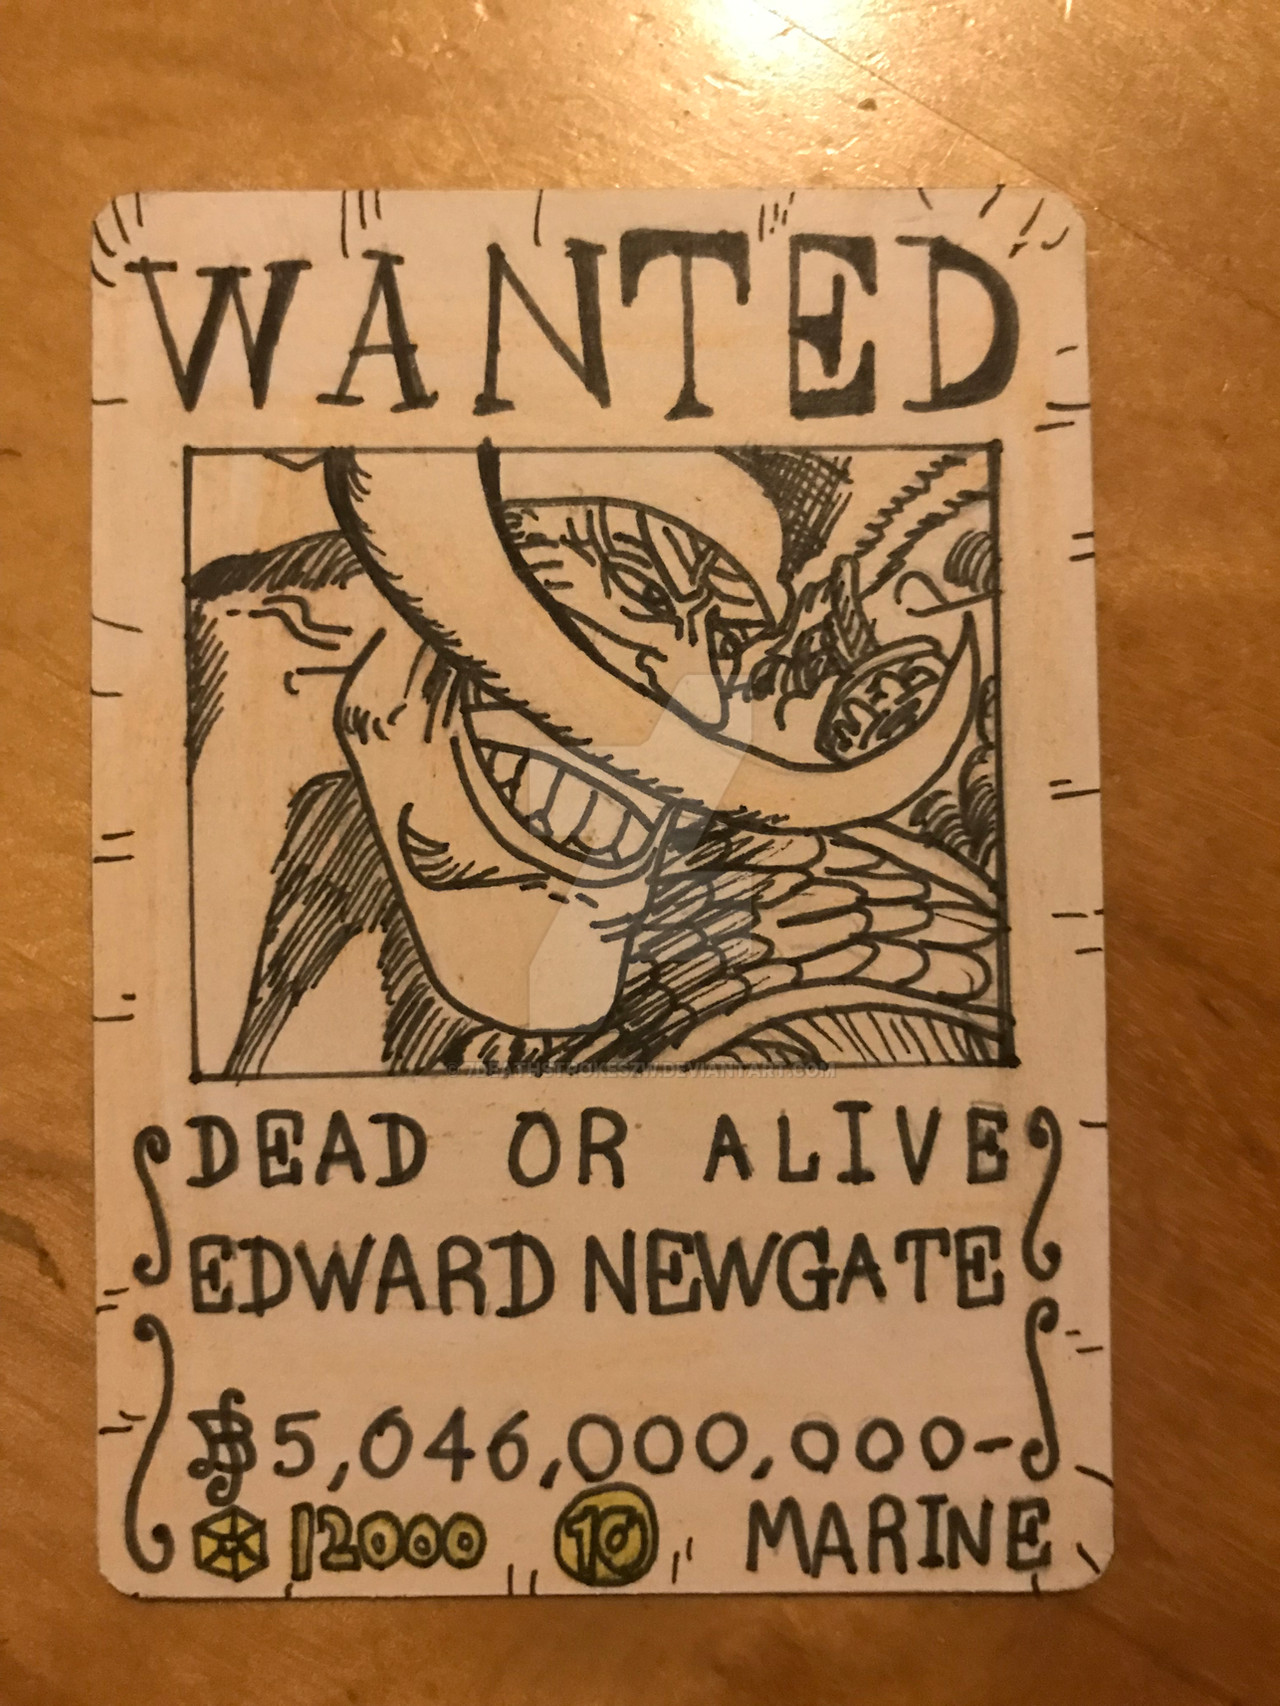 WANTED
DEAD OR ALIVE
EDWARD NEWGATE
฿5,046,000,000-
12000 10 MARINE